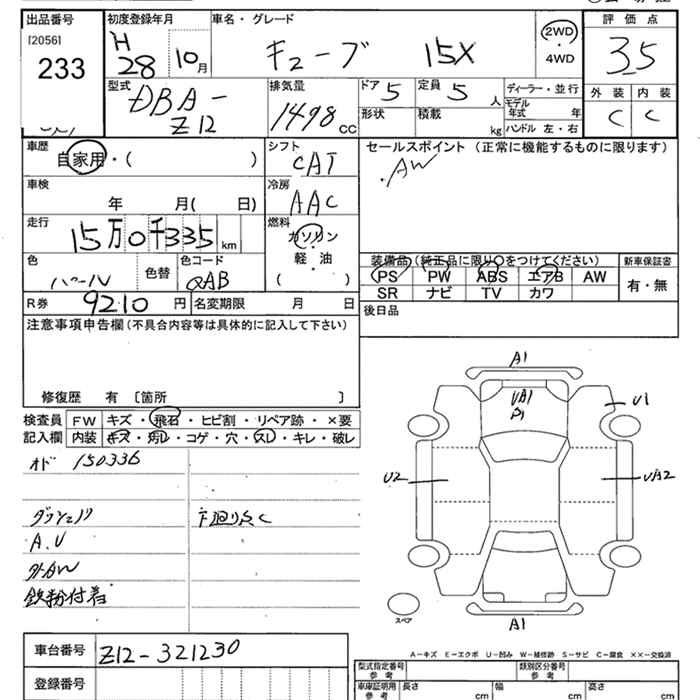 出品番号
[2056]
233
初度登録年月
H
28 10 月
車名・グレード
キューブ 15X
2WD
・
4WD
評価点
3.5
外装 内装
C C
型式
DBA-
Z12
排気量
1498 CC
ドア 5
定員 5 人
形状
積載 kg
ディーラー・並行
モデル
年式 年
ハンドル 左・右
車歴
自家用・( )
シフト
CAT
セールスポイント (正常に機能するものに限ります)
・AW
車検
年 月( 日)
冷房
AAC
走行
15万0千335 km
燃料
ガソリン
軽・油
( )
色
パール
色替
色コード
QAB
装備品(純正品に限り○をつけてください)
新車保証書
PS PW ABS エアB AW
有・無
SR ナビ TV カワ
R券 9210 円
名変期限 月 日
後日品
注意事項申告欄(不具合内容等は具体的に記入して下さい)
修復歴 有 [箇所 ]
検査員
記入欄
FW キズ・飛石・ヒビ割・リペア跡・×要
内装 キズ・汚レ・コゲ・穴・スレ・キレ・破レ
オド 150336
A.U
外AW
鉄粉付着
下廻りS,C
A1
U1
U2
UA2
A1
スペア
A−キズ E−エクボ U−凹み W−補修跡 S−サビ C−腐食 ××−交換済
車台番号 Z12-321230
登録番号
型式指定番号
参考
類別区分番号
参考
車庫証明用
参考
長さ cm
幅 cm
高さ cm